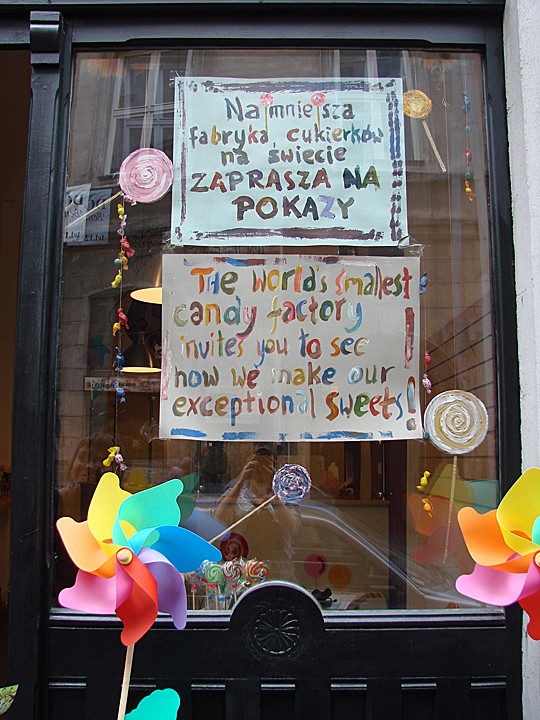 Najmniejsza
fabryka cukierków
na świecie
ZAPRASZA NA
POKAZY
The world's smallest
candy factory
invites you to see
how we make our
exceptional sweets!